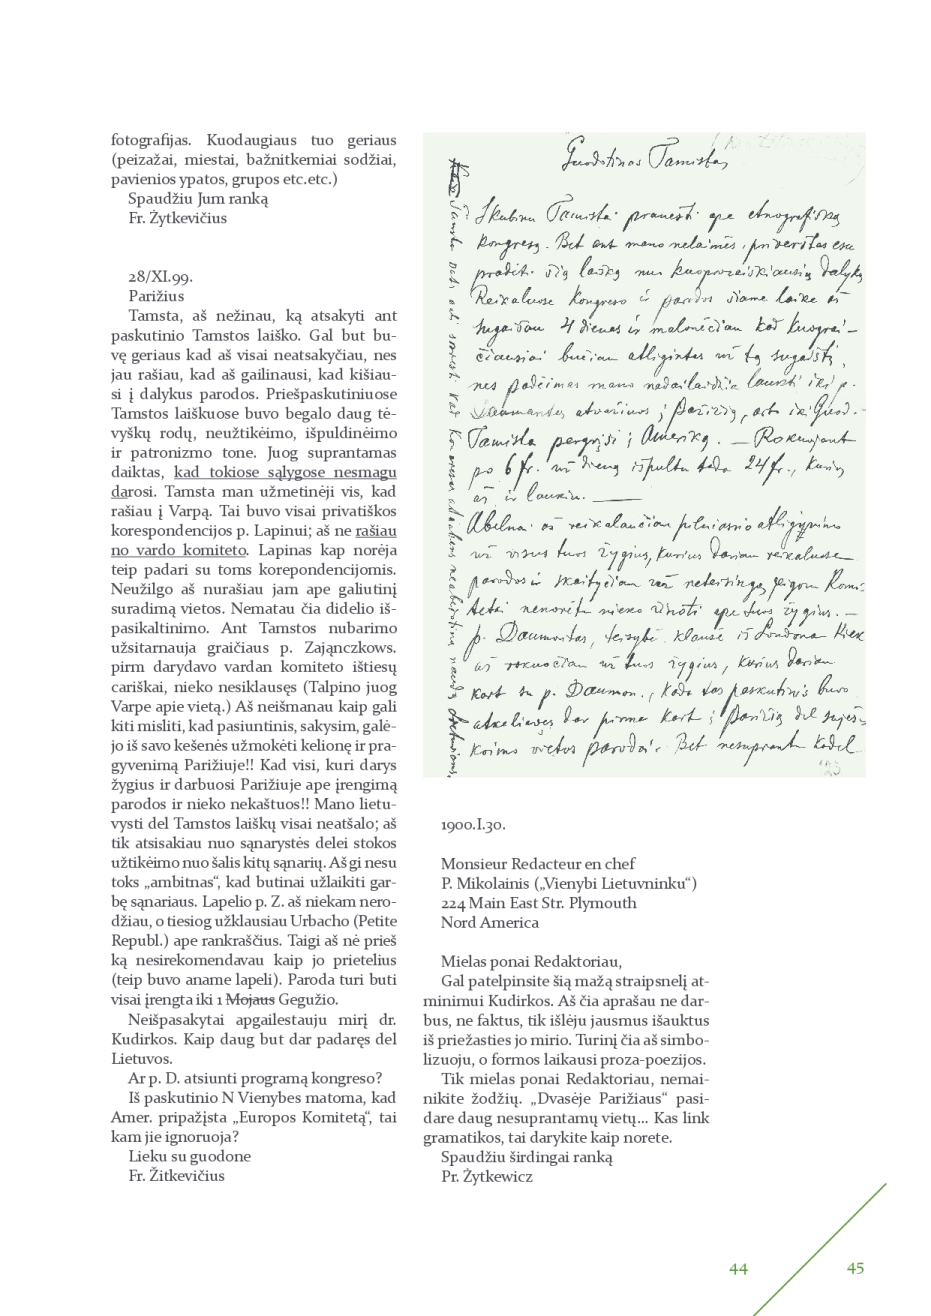 fotografijas. Kuodaugiaus tuo geriaus
(peizažai, miestai, bažnitkemiai sodžiai,
pavienios ypatos, grupos etc.etc.)
Spaudžiu Jum ranką
Fr. Žytkevičius
28/XI.99.
Parižius
Tamsta, aš nežinau, ką atsakyti ant
paskutinio Tamstos laiško. Gal but bu-
vę geriaus kad aš visai neatsakyčiau, nes
jau rašiau, kad aš gailinausi, kad kišiau-
si į dalykus parodos. Priešpaskutiniuose
Tamstos laiškuose buvo begalo daug tė-
vyškų rodų, neužtikėimo, išpuldinėimo
ir patronizmo tone. Juog suprantamas
daiktas, kad tokiose sąlygose nesmagu
darosi. Tamsta man užmetinėji vis, kad
rašiau į Varpą. Tai buvo visai privatiškos
korespondencijos p. Lapinui; aš ne rašiau
no vardo komiteto. Lapinas kap norėja
teip padari su toms korepondencijomis.
Neužilgo aš nurašiau jam ape galiutinį
suradimą vietos. Nematau čia didelio iš-
pasikaltinimo. Ant Tamstos nubarimo
užsitarnauja graičiaus p. Zająnczkows.
pirm darydavo vardan komiteto ištiesų
cariškai, nieko nesiklausęs (Talpino juog
Varpe apie vietą.) Aš neišmanau kaip gali
kiti misliti, kad pasiuntinis, sakysim, galė-
jo iš savo kešenės užmokėti kelionę ir pra-
gyvenimą Parižiuje!! Kad visi, kuri darys
žygius ir darbuosi Parižiuje ape įrengimą
parodos ir nieko nekaštuos!! Mano lietu-
vysti del Tamstos laiškų visai neatšalo; aš
tik atsisakiau nuo sąnarystės delei stokos
užtikėimo nuo šalis kitų sąnarių. Aš gi nesu
toks „ambitnas“, kad butinai užlaikiti gar-
bę sąnariaus. Lapelio p. Z. aš niekam nero-
džiau, o tiesiog užklausiau Urbacho (Petite
Republ.) ape rankraščius. Taigi aš nė prieš
ką nesirekomendavau kaip jo prietelius
(teip buvo aname lapeli). Paroda turi buti
visai įrengta iki 1 Mojaus Gegužio.
Neišpasakytai apgailestauju mirį dr.
Kudirkos. Kaip daug but dar padaręs del
Lietuvos.
Ar p. D. atsiunti programą kongreso?
Iš paskutinio N Vienybes matoma, kad
Amer. pripažįsta „Europos Komitetą“, tai
kam jie ignoruoja?
Lieku su guodone
Fr. Žitkevičius
Guodotinas Tamistas,
Skubinu Tamistai pranešti ape etnografišką
kongresą. Bet ant mano nelaimės, priverstas esu
pradėti šią laišką nuo
Reikaluose Kongreso ir parodos šiame laike aš
sugaišau 4 dienas ir malonėčiau kad kuogrei-
čiausiai bučiau atligintas už tą sugaištį,
nes padėimas mano nedaleidžia laukti iki p.
atvažiuos į Parižią, arba iki Guod.
Tamista pergrįši į Ameriką. — Rokuojant
po 6 fr. už dieną išpultu tada 24 fr., kurių
aš ir laukiu.
Abelnai aš reikalaučiau pilniasnio atliginimo
už visus tuos žygius, kurius dariau reikaluose
parodos ir skaityčiau už neteisingą, jeigu Komi-
tetai nenorėtu nieko žinoti ape tuos žygius. —
p. Daumontas, teisybė, klausė iš Londono kiek
aš rokuočiau už tuos žygius, kurius dariau
kart su p. Daumon., kada tas paskutinis buvo
atkeliavęs dar pirma kart į Parižią del
koimo vietos parodai. Bet nesuprantu kodel
'23
1900.I.30.
Monsieur Redacteur en chef
P. Mikolainis („Vienybi Lietuvninku“)
224 Main East Str. Plymouth
Nord America
Mielas ponai Redaktoriau,
Gal patelpinsite šią mažą straipsnelį at-
minimui Kudirkos. Aš čia aprašau ne dar-
bus, ne faktus, tik išlėju jausmus išauktus
iš priežasties jo mirio. Turinį čia aš simbo-
lizuoju, o formos laikausi proza-poezijos.
Tik mielas ponai Redaktoriau, nemai-
nikite žodžių. „Dvasėje Parižiaus“ pasi-
dare daug nesuprantamų vietų... Kas link
gramatikos, tai darykite kaip norete.
Spaudžiu širdingai ranką
Pr. Žytkewicz
44
45